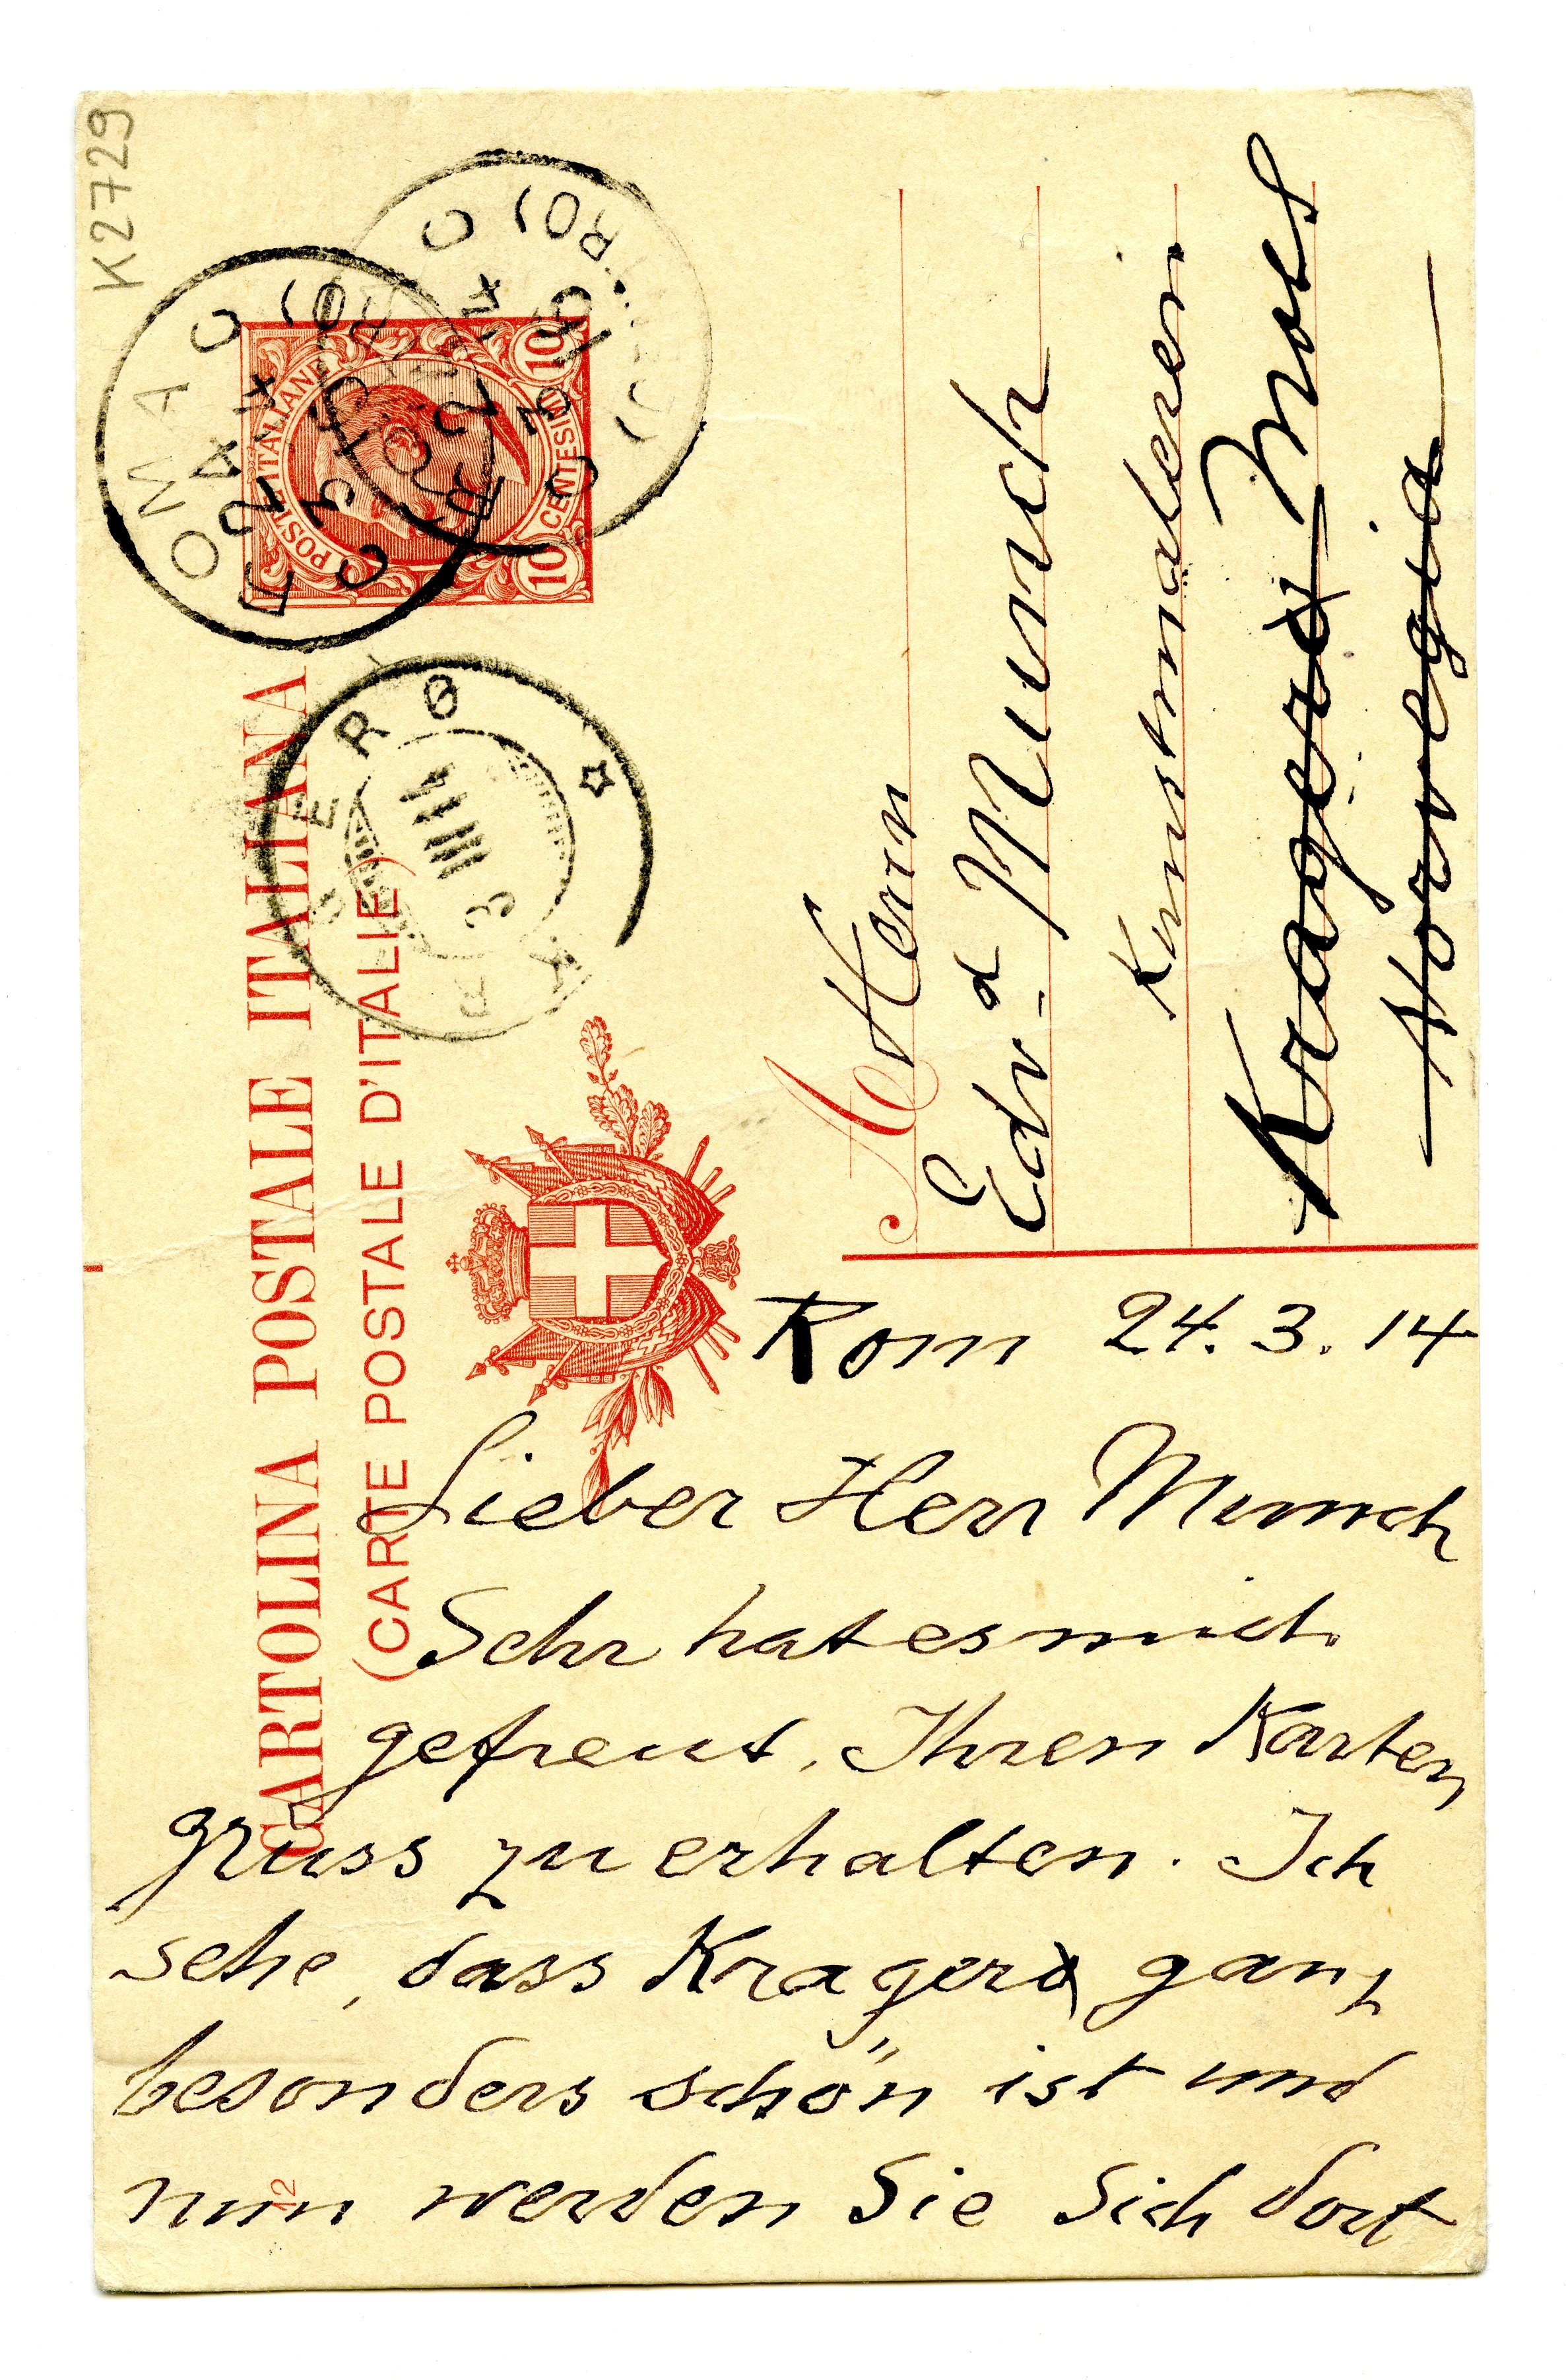 K2729
CARTOLINA POSTALE ITALIANA
(CARTE POSTALE D'ITALIE)
POSTE ITALIANE
10 CENTESIMI 10
ROMA
24
3 14
KRAGERØ
3 III 14
A Herrn
Edv-d Munch
Kunstmaleren
Kragerø Moss
Norvegia
Rom 24.3.14
Lieber Herr Munch
Sehr hat es mich
gefreut, Ihren Karten
gruss zu erhalten. Ich
sehe, dass Kragerø ganz
besonders schön ist und
nun werden Sie Sich dort
12